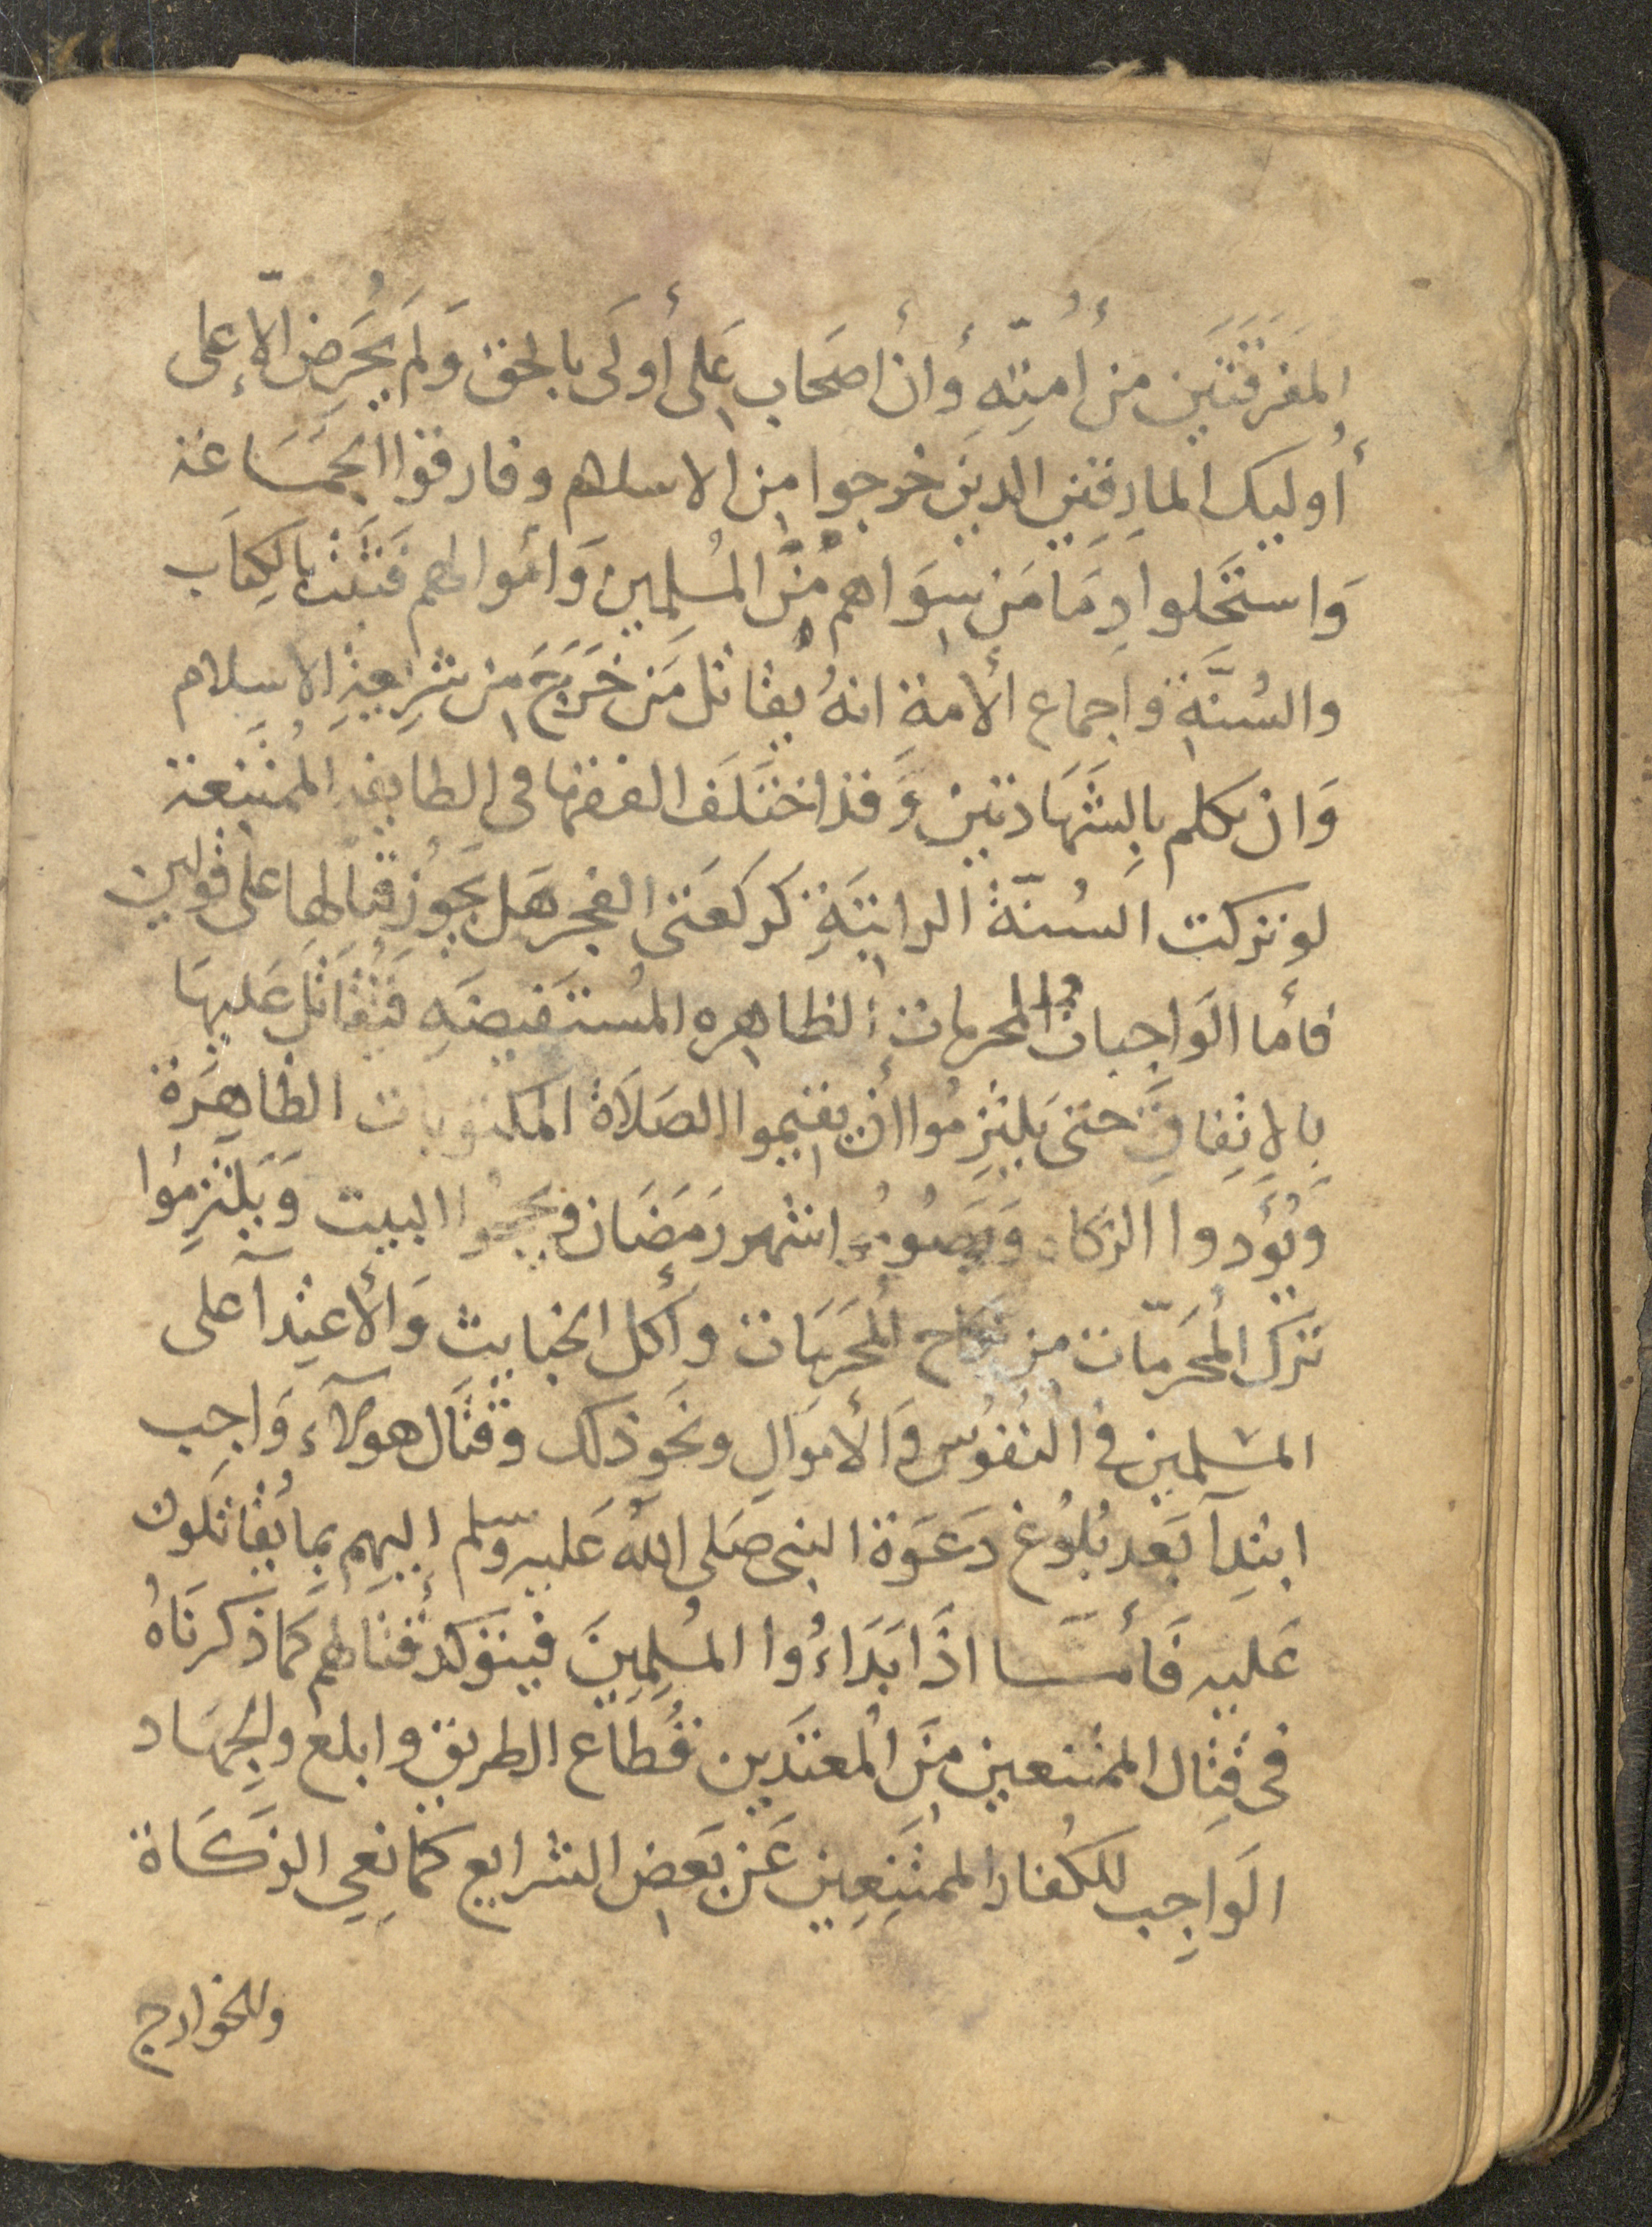 المفرقتَين من أُمتِهِ وأن أصحاب عَلى أولَى بالحق وَلم يُحَرِض الّا على
أُوليك المارِقِين الدين خرجوا من الاسلام وفارقوا الجمَاعة
وَاستَحَلوا دِمَا مَن سِوَاهم مِنَ المُسلِمين وَامُوالهم فثَبَت بالكِتَاب
والسُنَّةِ واجماع الأمة انهُ يقاتل مَن خَرَجَ مِن شرِيعةِ الاسلام
وَان تكلم بِالشهَادتين وَقد اختَلَف الفقها فى الطايفةِ المُمتَنعة
لو تركت السُنّةُ الراتبَةِ كركعَتى الفجر هَل يَجُوز قتالها على قولين
فأما الوَاجبات والمحرمات الظاهره المُستَفيضَةِ فَيُقَاتَل عَليهَا
بالاتِفاقِ حتى يَلتزِمُوا أن يقيموا الصَلَاةَ المكتوبات الظاهِرَة
وَيُؤدوا الزكاه وَيَصُومُوا شهر رَمَضَان ويحجُوا البيت وَيَلتزِمُوا
تَرك المُحَرمّات مِن نِكاح المُحَرمَات وأكل الخبايث وَالأعتِدآ على
المسلمين في النُفوُس وَالأموَالِ ونحَو ذلك وقتَال هولآء وَاجِب
ابتِدآ بَعد بُلوُغ دَعوَة النبى صَلى اللهُ عَليه وسّلم اليهِم بما يُقاتلوُن
عَليه فَأمسا اذَا بَدَاءُوا المُسلِمِينَ فيتؤكد قتالهم كمَا ذكرنَاهُ
فى قِتال الممتنعين مِنَ المُعتَدين قُطاع الطريق وابلغ والجِهَاد
الوَاجِب للكُفار المُمتَنِعِين عَن بَعض الشرايع كمَانِعِي الزَكَاة
وللخوارج